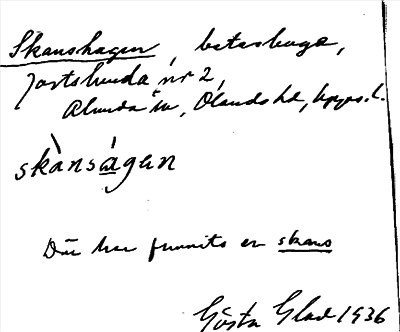 Skanshagen, beteshage,
Jortslunda nr 2,
Alunda sn, Ölands hd, Upps. l.
skànságen
Där har funnits en skans
Gösta Glad 1936